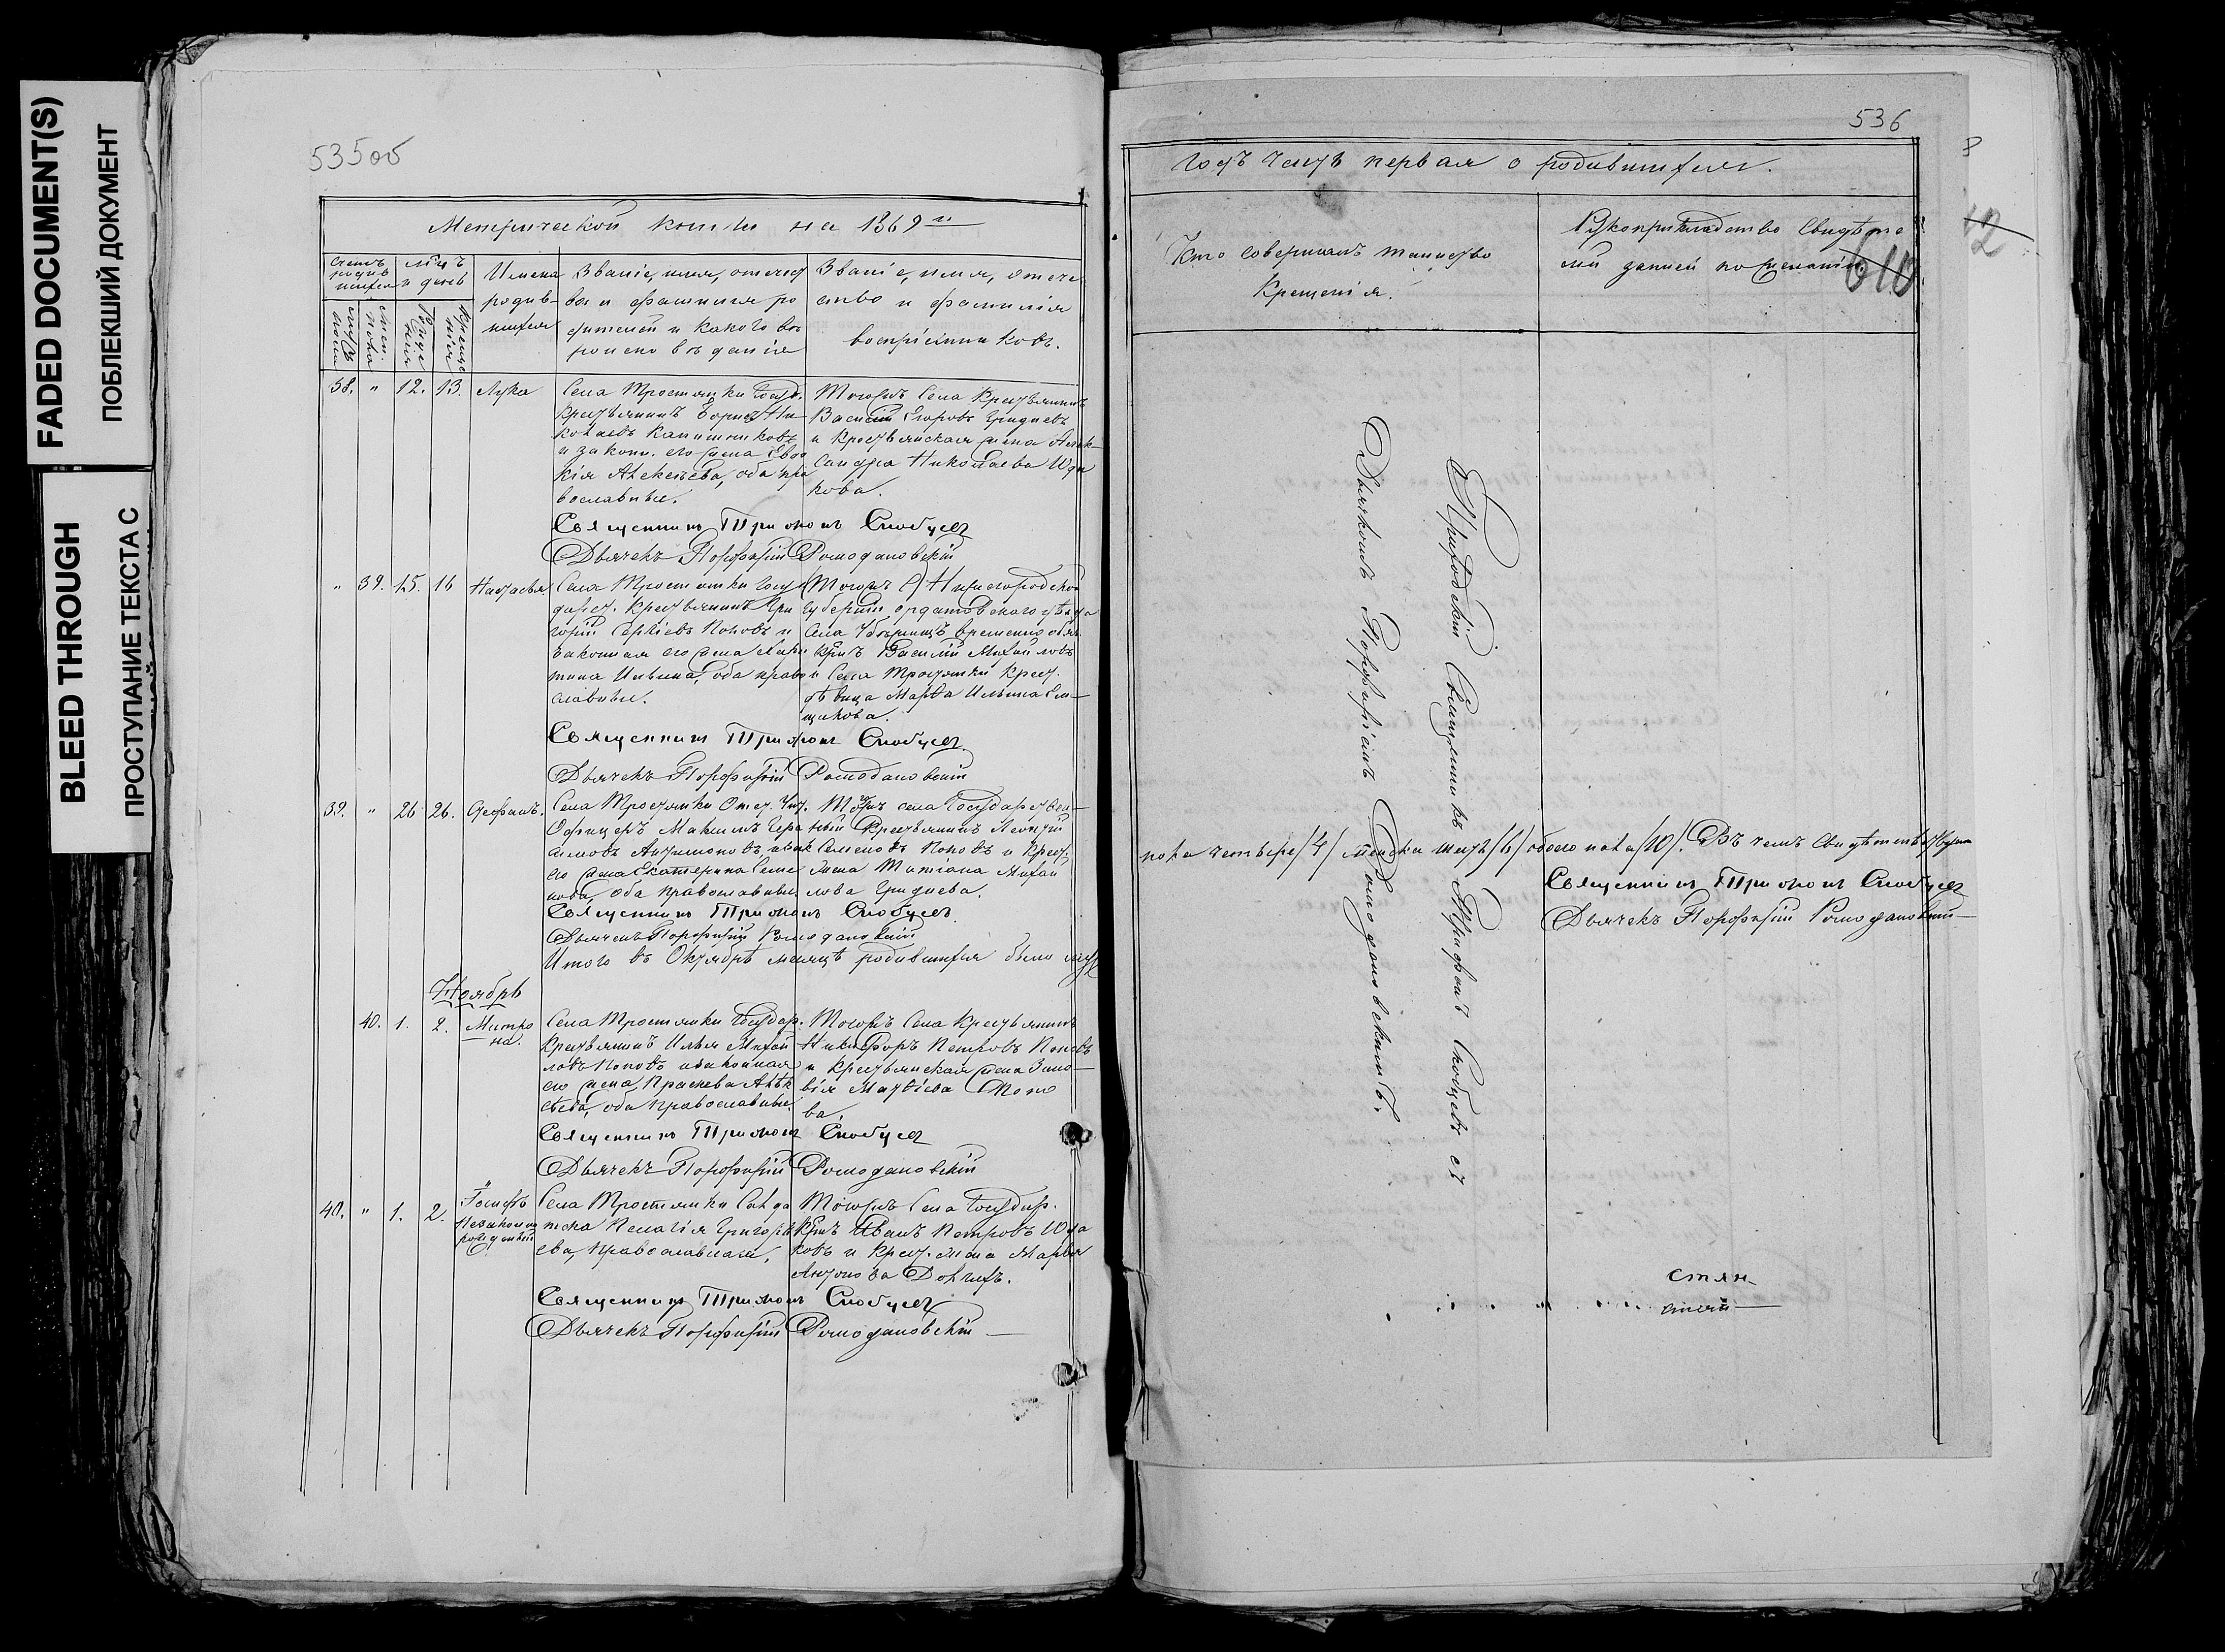 FADED DOCUMENT(S)
ПОБЛЕКШИЙ ДОКУМЕНТ
BLEED THROUGH
ПРОСТУПАНИЕ ТЕКСТА С
535об
Метрической книги на 1869й
Счетъ родившихся
Мѣц. и день
Имена родившихся
Званіе, имя, отчество и фамилія родителей и какого вѣроисповѣданія
Званіе, имя, отчество и фамилія воспріемниковъ.
мужеска пола
женска пола
рожденія
крещенія
38. " 12. 13. Лука
Села Тростянки Госуд.
Крестьянинъ Борисъ Ни
колаевъ Капишниковъ
и законн. его жена Евдо
кія Алексѣева, оба пра
вославные.
Тогожъ Села Крестьянинъ
Василій Егоровъ Гридневъ
и Крестьянская жена Алек
сандра Николаева Юда
кова.
Священникъ Трифонъ Скобцевъ
Дьячекъ Порфирій Ромодановскій
" 39. 15. 16 Настасья
Села Тростянки Госу
дарст. Крестьянинъ Гри
горій Сергіевъ Поповъ и
законная его жена Хари
тина Ильина, оба право
славные.
Тогожъ С. Нижегородской
Губерніи Ардатовскаго уѣзда
Села временно обяз.
Крест. Василій Михайловъ
и Села Тростянки Крест.
дѣвица Марѳа Ильина
Священникъ Трифонъ Скобцевъ
Дьячекъ Порфирій Ромодановскій
39. " 26 26. Стефанъ.
Села Тростянки Отст. Унт.
Офицеръ Максимъ Гера
симовъ Антимоновъ и зак
его жена Екатерина Семе
нова, оба православные
Тогожъ села Государствен
ный Крестьянинъ Леонтій
Семеновъ Поповъ и Крест.
жена Татіана Михай
лова Гриднева.
Священникъ Трифонъ Скобцевъ.
Дьячекъ Порфирій Ромодановскій
Итого въ Октябрѣ месяцѣ родившихся было муж
Ноябрь
40. 1. 2. Матро
на.
Села Тростянки Государ.
Крестьянинъ Илья Михай
ловъ Поповъ и законная
его жена Прасковья Алек
сѣева, оба православные.
Тогожъ Села Крестьянинъ
Никифоръ Петровъ Поповъ
и крестьянская жена Зино
вія Матвіева Попо
ва
Священникъ Трифонъ Скобцевъ
Дьячекъ Порфирій Ромодановскій
40. " 1. 2. Іосифъ
Незаконно
рожденный
Села Тростянки Солда
тска Пелагія Григорь
ева, православная.
Тогожъ Села Государ.
Кр. Иванъ Петровъ Юда
ковъ и Крест. жена Марья
Антонова Долгихъ.
Священникъ Трифонъ Скобцевъ
Дьячекъ Порфирій Ромодановскій
536
годъ часть первая о родившихся.
Кто совершалъ таинство
Крещенія.
Рукоприкладство свидѣте
лей записи по желанію.
610
12
Приходскій Священникъ Трифонъ Скобцевъ съ
Дьячкомъ Порфиріемъ Ромодановскимъ.
пола четыре /4/ женска шесть /6/ обоего пола /10/. Въ чемъ свидѣтельствуемъ
Священникъ Трифонъ Скобцевъ
Дьячекъ Порфирій Ромодановскій